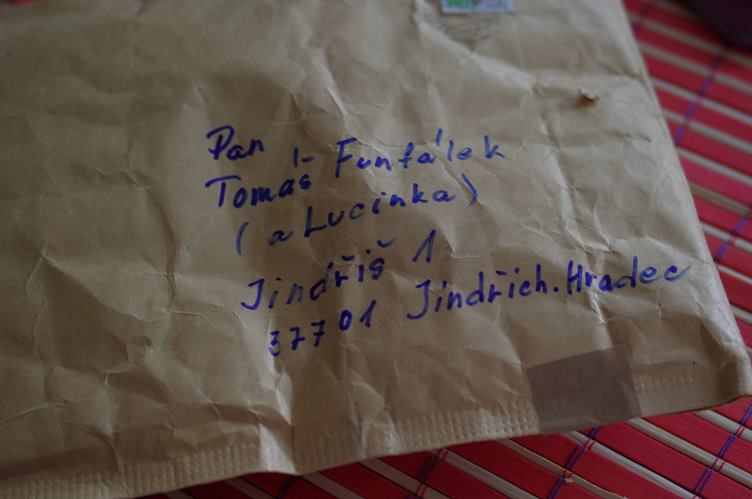 Pan
Tomáš Funfálek
(a Lucinka)
Jindřiš 1
37701 Jindřich. Hradec